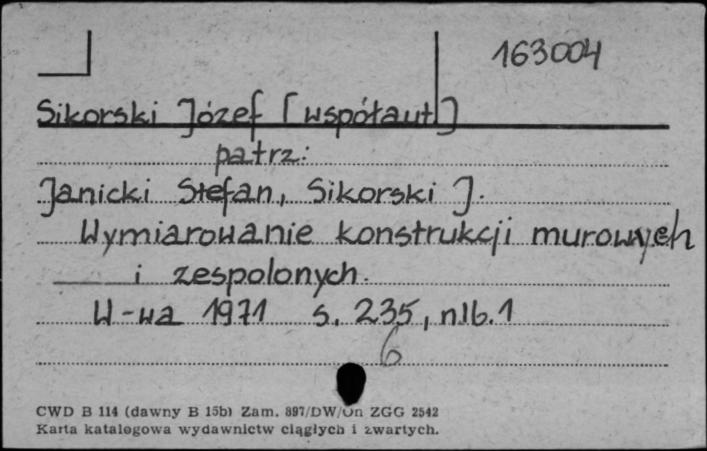 163004
Sikorski Józef [współaut]
patrz:
Janicki Stefan, Sikorski J.
Wymiarowanie konstrukcji murowych
i zespolonych.
W-wa 1971 s. 235, nlb. 1
6
CWD B 114 (dawny B 15b) Zam. 897/DW/Un ZGG 2542
Karta katalogowa wydawnictw ciągłych i zwartych.